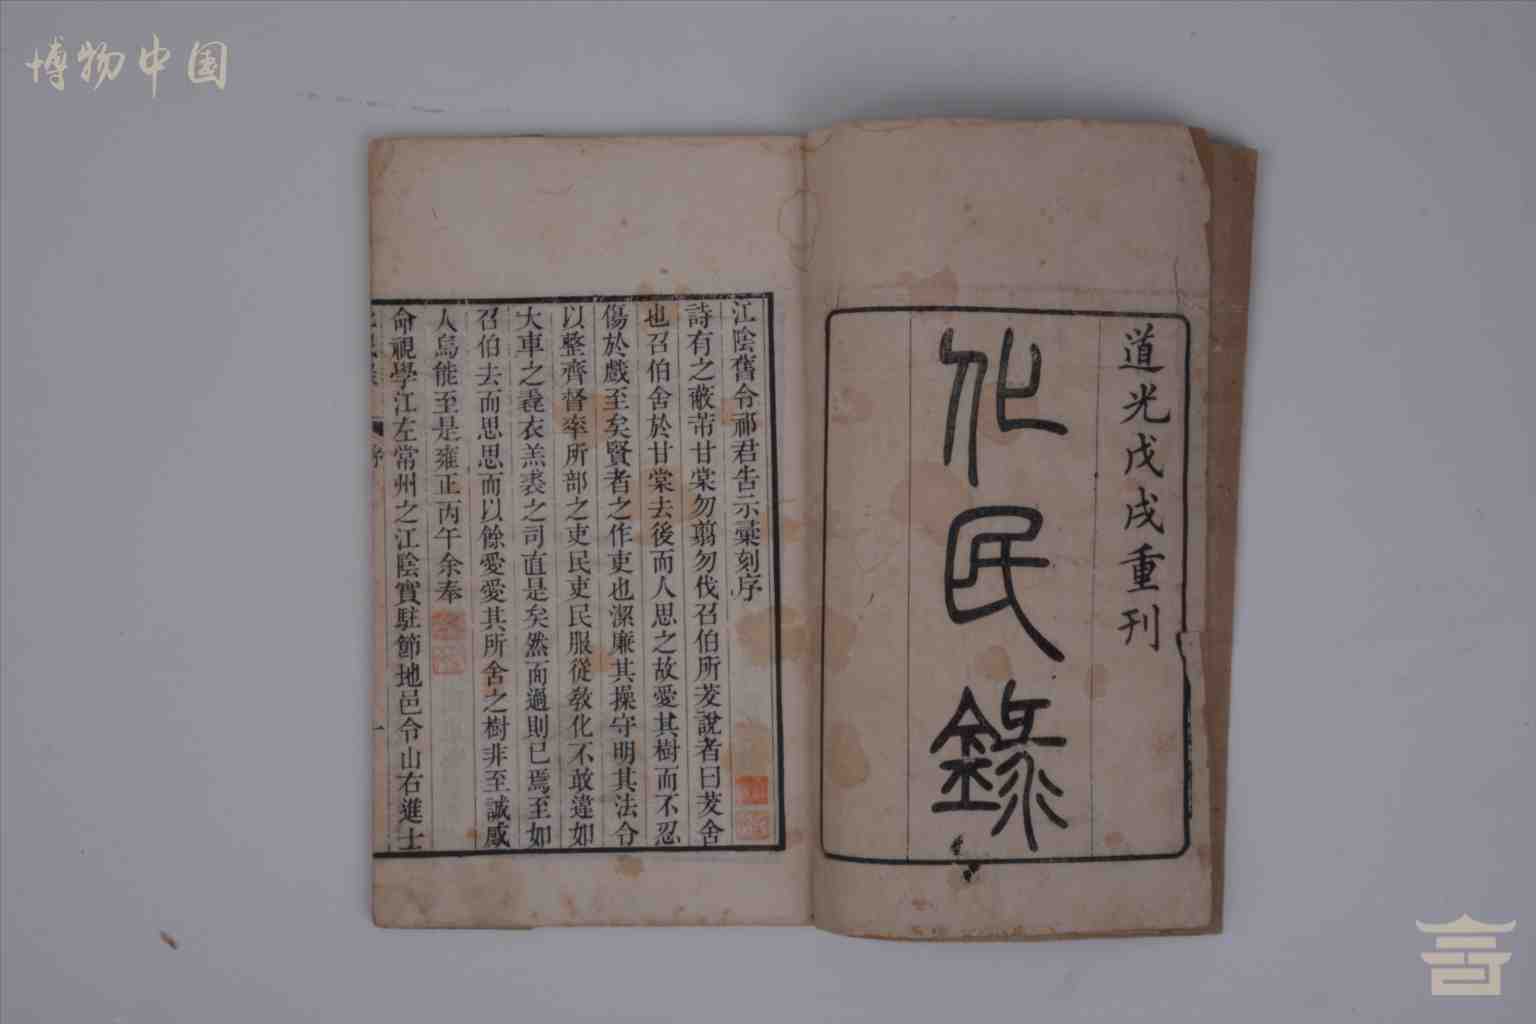 博物中国
道光戊戌重刊
化民錄
江陰舊令祁君告示稾刻序
詩有之蔽芾甘棠勿翦勿伐召伯所茇說者曰茇舍
也召伯舍於甘棠去後而人思之故愛其樹而不忍
傷於戲至矣賢者之作吏也潔廉其操守明其法令
以整齊督率所部之吏民吏民服從敎化不敢違如
大車之毳衣羔裘之司直是矣然而過則已焉至如
召伯去而思思而以餘愛愛其所舍之樹非至誠感
人烏能至是雍正丙午余奉
命視學江左常州之江陰實駐節地邑令山右進士